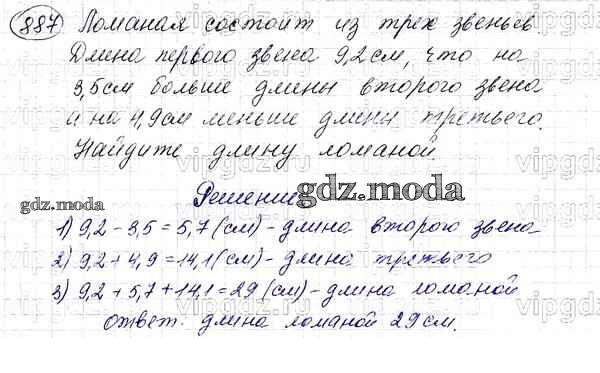 887 Ломаная состоит из трех звеньев.
Длина первого звена 9,2 см, что на
3,5 см больше длины второго звена
и на 4,9 см меньше длины третьего.
Найдите длину ломаной.
Решение
gdz.moda
gdz.moda
1) 9,2 - 3,5 = 5,7 (см) - длина второго звена
2) 9,2 + 4,9 = 14,1 (см) - длина третьего
3) 9,2 + 5,7 + 14,1 = 29 (см) - длина ломаной
ответ: длина ломаной 29 см.